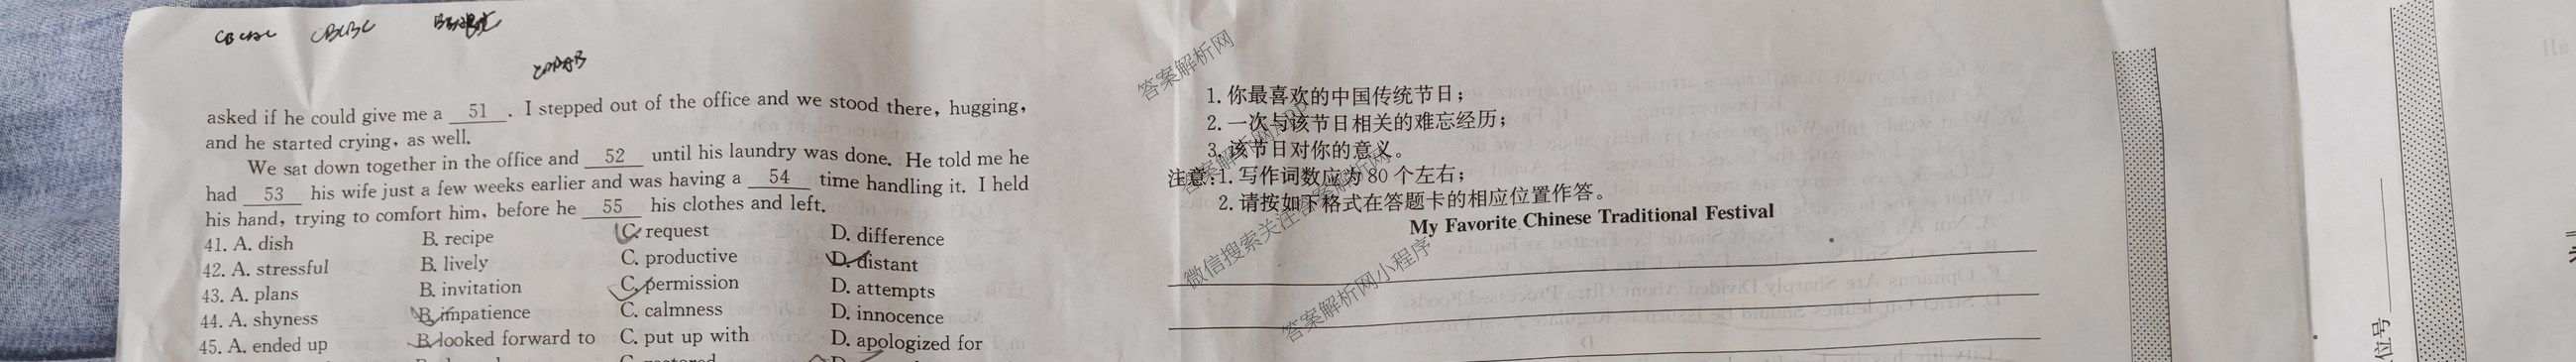 asked if he could give me a 51 . I stepped out of the office and we stood there, hugging,
and he started crying, as well.
We sat down together in the office and 52 until his laundry was done. He told me he
had 53 his wife just a few weeks earlier and was having a 54 time handling it. I held
his hand, trying to comfort him, before he 55 his clothes and left.
41. A. dish B. recipe C. request D. difference
42. A. stressful B. lively C. productive D. distant
43. A. plans B. invitation C. permission D. attempts
44. A. shyness B. impatience C. calmness D. innocence
45. A. ended up B. looked forward to C. put up with D. apologized for
答案解析网
1. 你最喜欢的中国传统节日；
2. 一次与该节日相关的难忘经历；
3. 该节日对你的意义。
注意：1. 写作词数应为 80 个左右；
2. 请按如下格式在答题卡的相应位置作答。
My Favorite Chinese Traditional Festival
微信搜索关注答案解析网
答案解析网小程序
位号